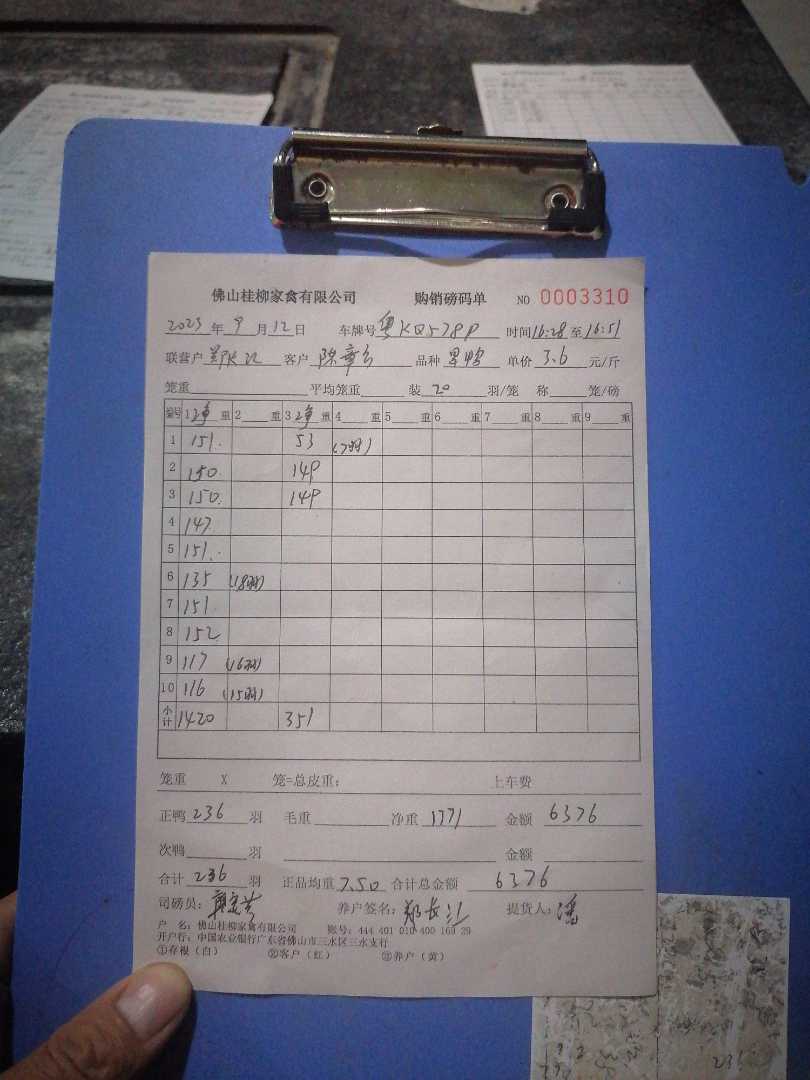 佛山桂柳家禽有限公司 购销磅码单 NO 0003310
2023 年 9 月 12 日 车牌号 粤KQ578P 时间 16:28 至 16:51
联营户 客户 品种 单价 3.6 元/斤
笼重 平均笼重 装 20 羽/笼 称 笼/磅
编号 1 净 重 2 重 3 净 重 4 重 5 重 6 重 7 重 8 重 9 重
1 151. 53 (7羽)
2 150. 149
3 150. 149
4 147
5 151.
6 135 (18羽)
7 151.
8 152
9 117 (16羽)
10 116 (15羽)
小计 1420 351
笼重 X 笼=总皮重: 上车费
正鸭 236 羽 毛重 净重 1771 金额 6376
次鸭 羽 金额
合计 236 羽 正品均重 7.50 合计总金额 6376
司磅员: 养户签名: 郑长江 提货人: 潘
户 名: 佛山桂柳家禽有限公司 账号: 444 401 010 400 169 29
开户行: 中国农业银行广东省佛山市三水区三水支行
①存根(白) ②客户(红) ③养户(黄)